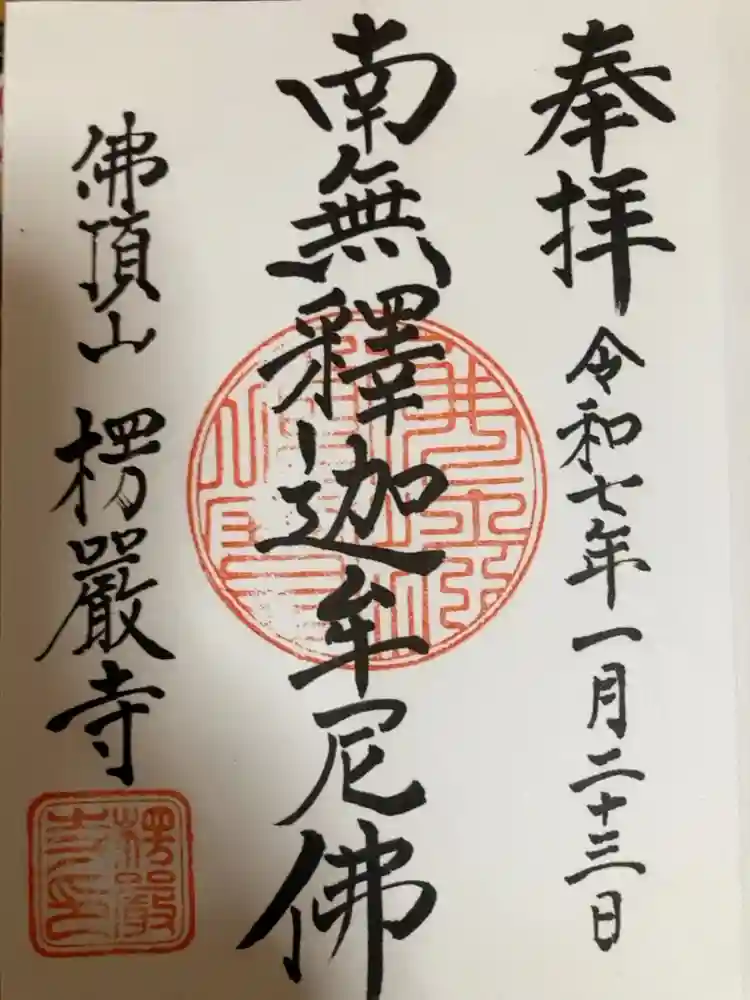 奉拝 令和七年一月二十三日
南無釋迦牟尼佛
佛頂山 楞嚴寺
楞嚴
寺印